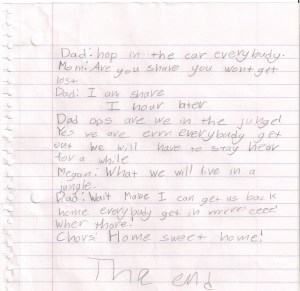 Dad: hop in the car everybudy.
Mom: Are you share you wont get
lost.
Dad: I am share
I hour later
Dad ops are we in the jungel
Yes we are errrr everybudy get
out we will have to stay hear
for a while
Megan: What we will live in a
jungle.
Dad: Wait Maybe I can get us back
home everybudy get in rrrrrrr eeee!
wher thare!
Chors: Home sweet home!
The end